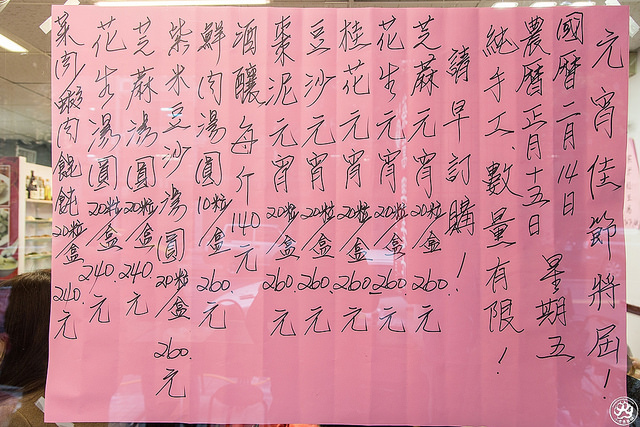 元宵佳節將屆！
國曆二月14日
農曆正月十五日 星期五
純手工、數量有限！
請早訂購！
芝蔴元宵20粒/盒260.元
花生元宵20粒/盒260元
桂花元宵20粒/盒260元
豆沙元宵20粒/盒260.元
棗泥元宵20粒/盒260.元
酒釀每斤140元
鮮肉湯圓10粒/盒260.元
紫米豆沙湯圓20粒/盒260.元
芝蔴湯圓20粒/盒240.元
花生湯圓20粒/盒240.元
菜肉蝦肉餛飩20粒/盒240.元